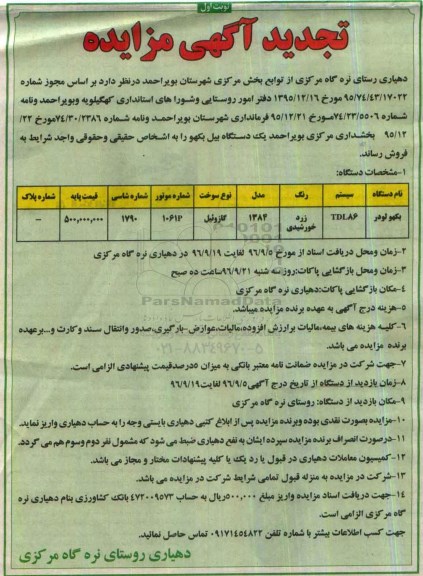 نوبت اول
تجدید آگهی مزایده
دهیاری رستای نره گاه مرکزی از توابع بخش مرکزی شهرستان بویراحمد درنظر دارد بر اساس مجوز شماره
۹۵/۷۴/۴۳/۱۷۰۲۲ مورخ ۱۳۹۵/۱۲/۱۶ دفتر امور روستایی وشورا های استانداری کهگیلویه وبویراحمد ونامه
شماره ۷۴/۲۳/۵۵۰۶مورخ ۹۵/۱۲/۲۱ فرمانداری شهرستان بویراحمد ونامه شماره ۷۴/۳۰/۲۳۸۶مورخ ۲۲/
۹۵/۱۲ بخشداری مرکزی بویراحمد یک دستگاه بیل بکهو را به اشخاص حقیقی وحقوقی واجد شرایط به
فروش رساند.
۱-مشخصات دستگاه:
نام دستگاه سیستم رنگ مدل نوع سوخت شماره موتور شماره شاسی قیمت پایه شماره پلاک
بکهو لودر TDLA۶ زرد خورشیدی ۱۳۸۴ گازوئیل ۱۰۶۱P ۱۷۹۰ ۵۰۰,۰۰۰,۰۰۰ –
۲-زمان ومحل دریافت اسناد از مورخ ۹۶/۹/۵ لغایت ۹۶/۹/۱۹ در دهیاری نره گاه مرکزی
۳-زمان ومحل بازگشایی پاکات:روز سه شنبه ۹۶/۹/۲۱ساعت ده صبح
۴-مکان بازگشایی پاکات:دهیاری نره گاه مرکزی
۵-هزینه درج آگهی به عهده برنده مزایده میباشد.
۶-کلیه هزینه های بیمه،مالیات برارزش افزوده،مالیات،عوارض-بارگیری،صدور وانتقال سند وکارت و...برعهده
برنده مزایده می باشد.
۷-جهت شرکت در مزایده ضمانت نامه معتبر بانکی به میزان ۵درصدقیمت پیشنهادی الزامی است.
۸-زمان بازدید از دستگاه از تاریخ درج آگهی۹۶/۹/۵ لغایت۹۶/۹/۱۹
۹-مکان بازدید از دستگاه: روستای نره گاه مرکزی
۱۰-مزایده بصورت نقدی بوده وبرنده مزایده پس از ابلاغ کتبی دهیاری بایستی وجه را به حساب دهیاری واریز نماید.
۱۱-درصورت انصراف برنده مزایده سپرده ایشان به نفع دهیاری ضبط می شود که مشمول نفر دوم وسوم هم می گردد.
۱۲-کمیسیون معاملات دهیاری در قبول یا رد یک یا کلیه پیشنهادات مختار و مجاز می باشد.
۱۳-شرکت در مزایده به منزله قبول تمامی شرایط شرکت در مزایده می باشد.
۱۴-جهت دریافت اسناد مزایده واریز مبلغ ۵۰۰,۰۰۰ریال به حساب ۴۷۲۰۰۹۵۷۳ بانک کشاورزی بنام دهیاری نره
گاه مرکزی الزامی است.
جهت کسب اطلاعات بیشتر با شماره تلفن ۰۹۱۷۱۴۵۴۸۲۲ تماس حاصل نمائید.
دهیاری روستای نره گاه مرکزی
ParsNamadData
۰۲۱-۸۸۳۴۹۶۷۰-۵